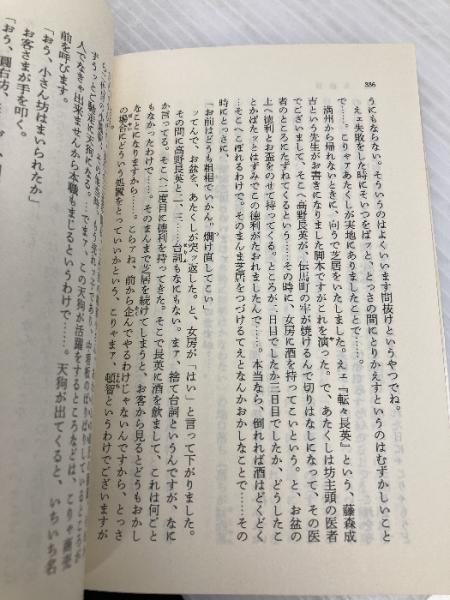 386
うにもならない。そういうのはいくいます間抜けというやつでね。
えェ失敗をした時にそいつをぱッと、とっさの間にとりかえすというのはむずかしいこと
で……こりゃァあたくしが実地にありましたことで……。
満州から帰れないときに、向うで芝居をいたしました。えェ『転々長英』という、藤森成
吉という先生がお書きになりました脚本ですがこれを演った。で、あたくしは坊主頭の医者
でございまして、そこへ高野長英が、伝馬町の牢が焼けるんで切りはなしになって、その医
者のところにたずねてくるという……その時に、女房に酒を持ってこいという。と、お盆の
上へ徳利とお盃をのせて持ってくる。ところが二日目でしたか三日目でしたか、どうしたこ
とかばたッとはずみでこの徳利がたおれましたんで……。本当なら、倒れれば酒はどくどく
……そこへこぼれるわけで。そのまんま芝居をつづけるてえとなんかおかしなことで……その
時にとっさに、
「お前はどうも粗相でいかん。燗け直してこい」
ってんで、お盆を、あたくしが突ッ返した。と、女房が「はい」と言って下がりました。
その間に高野長英と二、三……台詞もなにもない。まァ、捨て台詞というんですが、なに
か言ってる。そこへ二度目に徳利を持ってきた。そこで長英に酒を飲まして、これは何ごと
もなかったわけで……。そのまんまで芝居を続けてしまうと、お客から見るとどうもおかし
なことになりますから……。こらァね、前から企んでやるわけじゃないんですから、とっさ
の場合にどういう処置をとっていいかという、こりゃまァ、頓智というわけでございますが
……でまァ、この天狗が活躍をするところなどは、こりゃ商売
人でなきゃ出来ませんから本職もまじるというわけで……。天狗が出てくると、いちいち名
前を呼びます。
「おう、小さん坊はまいられたか」
お客さまが手を叩く。
「おう、圓右坊、